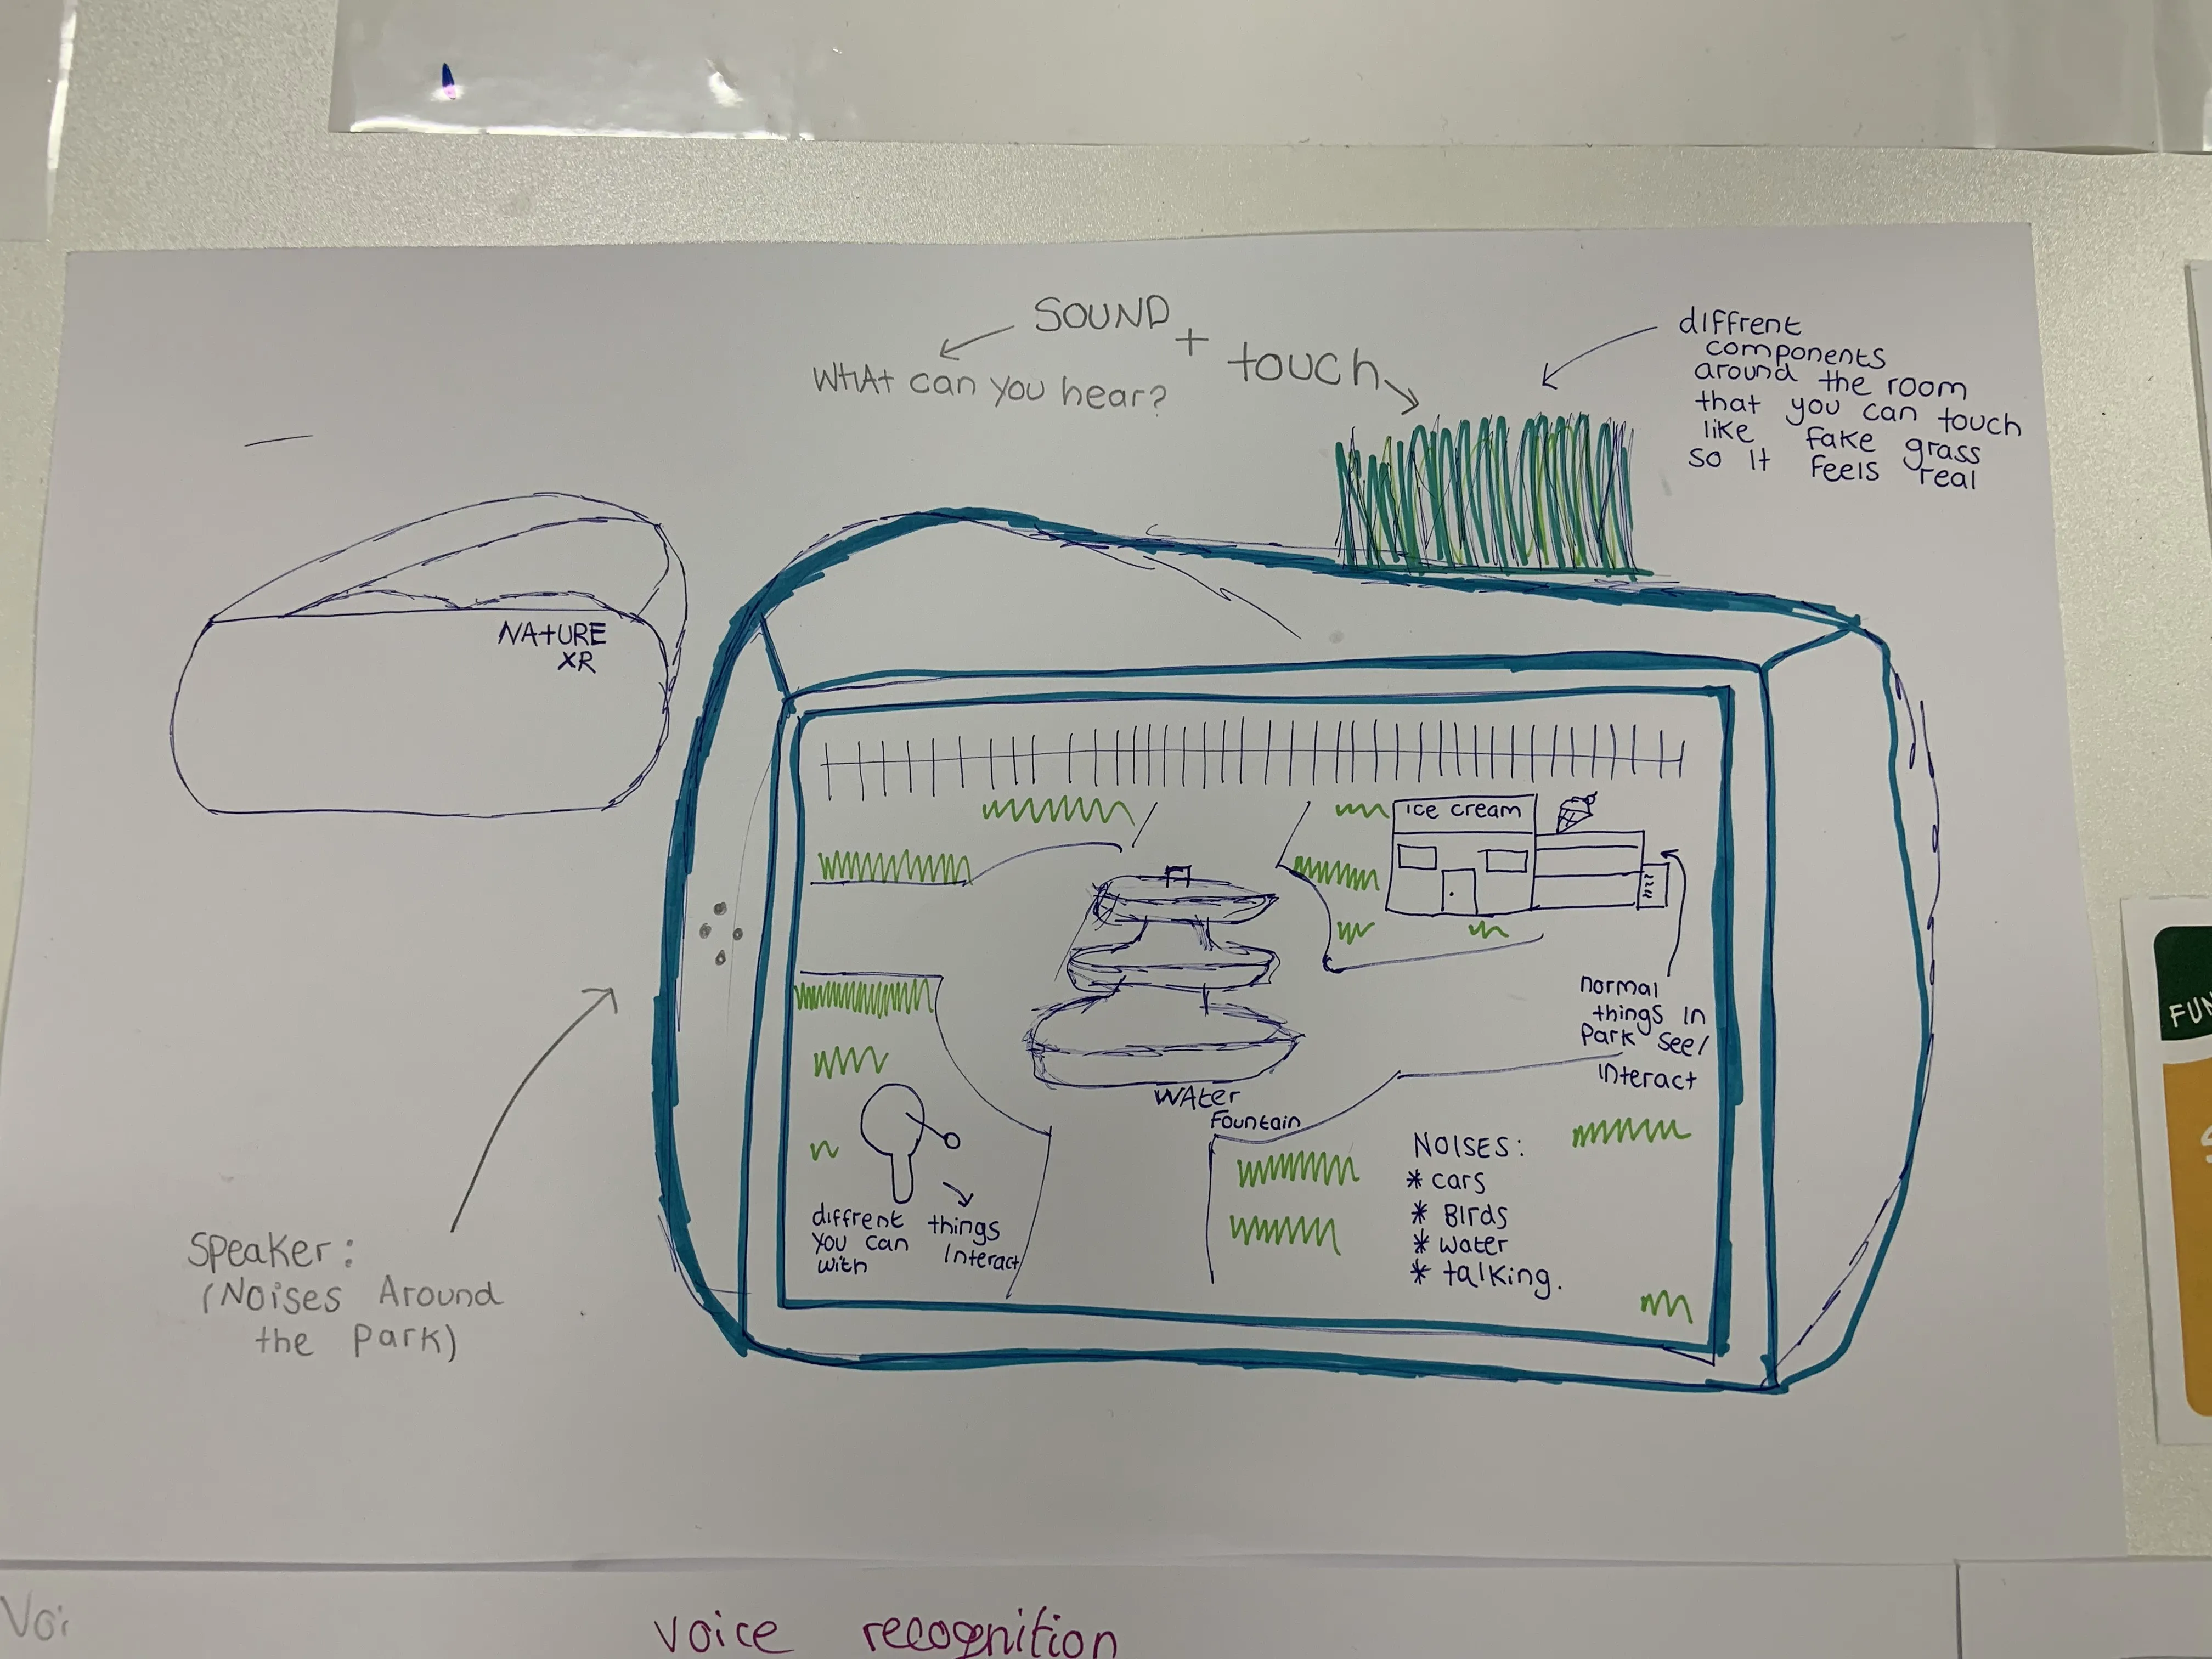 SOUND
+
touch
WHAt can you hear?
diffrent
components
around the room
that you can touch
like fake grass
so it feels real
NAtURE
XR
ice cream
normal
things in
Park see/
interact
WAter
Fountain
NOISES:
* cars
* Birds
* water
* talking.
diffrent things
you can interact
with
Speaker:
(Noises Around
the park)
FUN
Voi
voice recognition